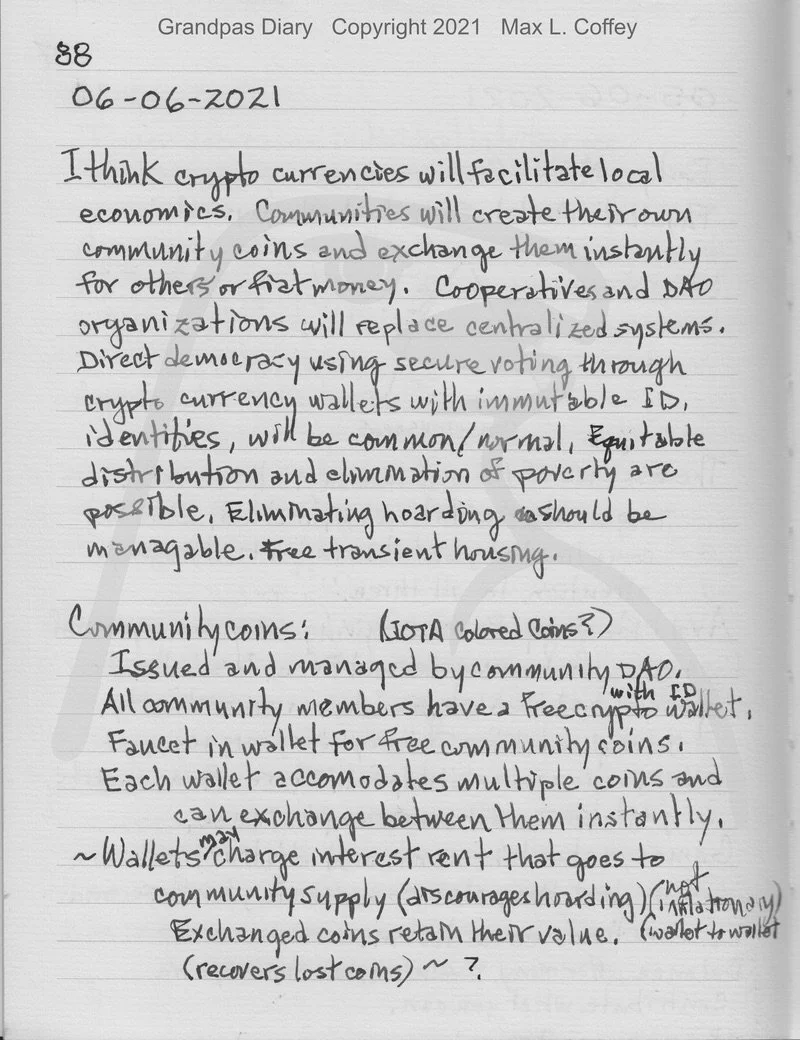 Grandpas Diary Copyright 2021 Max L. Coffey
38
06-06-2021
I think crypto currencies will facilitate local
economics. Communities will create their own
community coins and exchange them instantly
for others or fiat money. Cooperatives and DAO
organizations will replace centralized systems.
Direct democracy using secure voting through
crypto currency wallets with immutable ID,
identities, will be common/normal. Equitable
distribution and elimination of poverty are
possible. Eliminating hoarding should be
managable. Free transient housing.
Community coins: (IOTA Colored Coins?)
Issued and managed by community DAO.
All community members have a free crypto wallet with ID.
Faucet in wallet for free community coins.
Each wallet accomodates multiple coins and
can exchange between them instantly.
~ Wallets may charge interest rent that goes to
community supply (discourages hoarding) (not inflationary)
Exchanged coins retain their value. (wallet to wallet
(recovers lost coins) ~ ?.